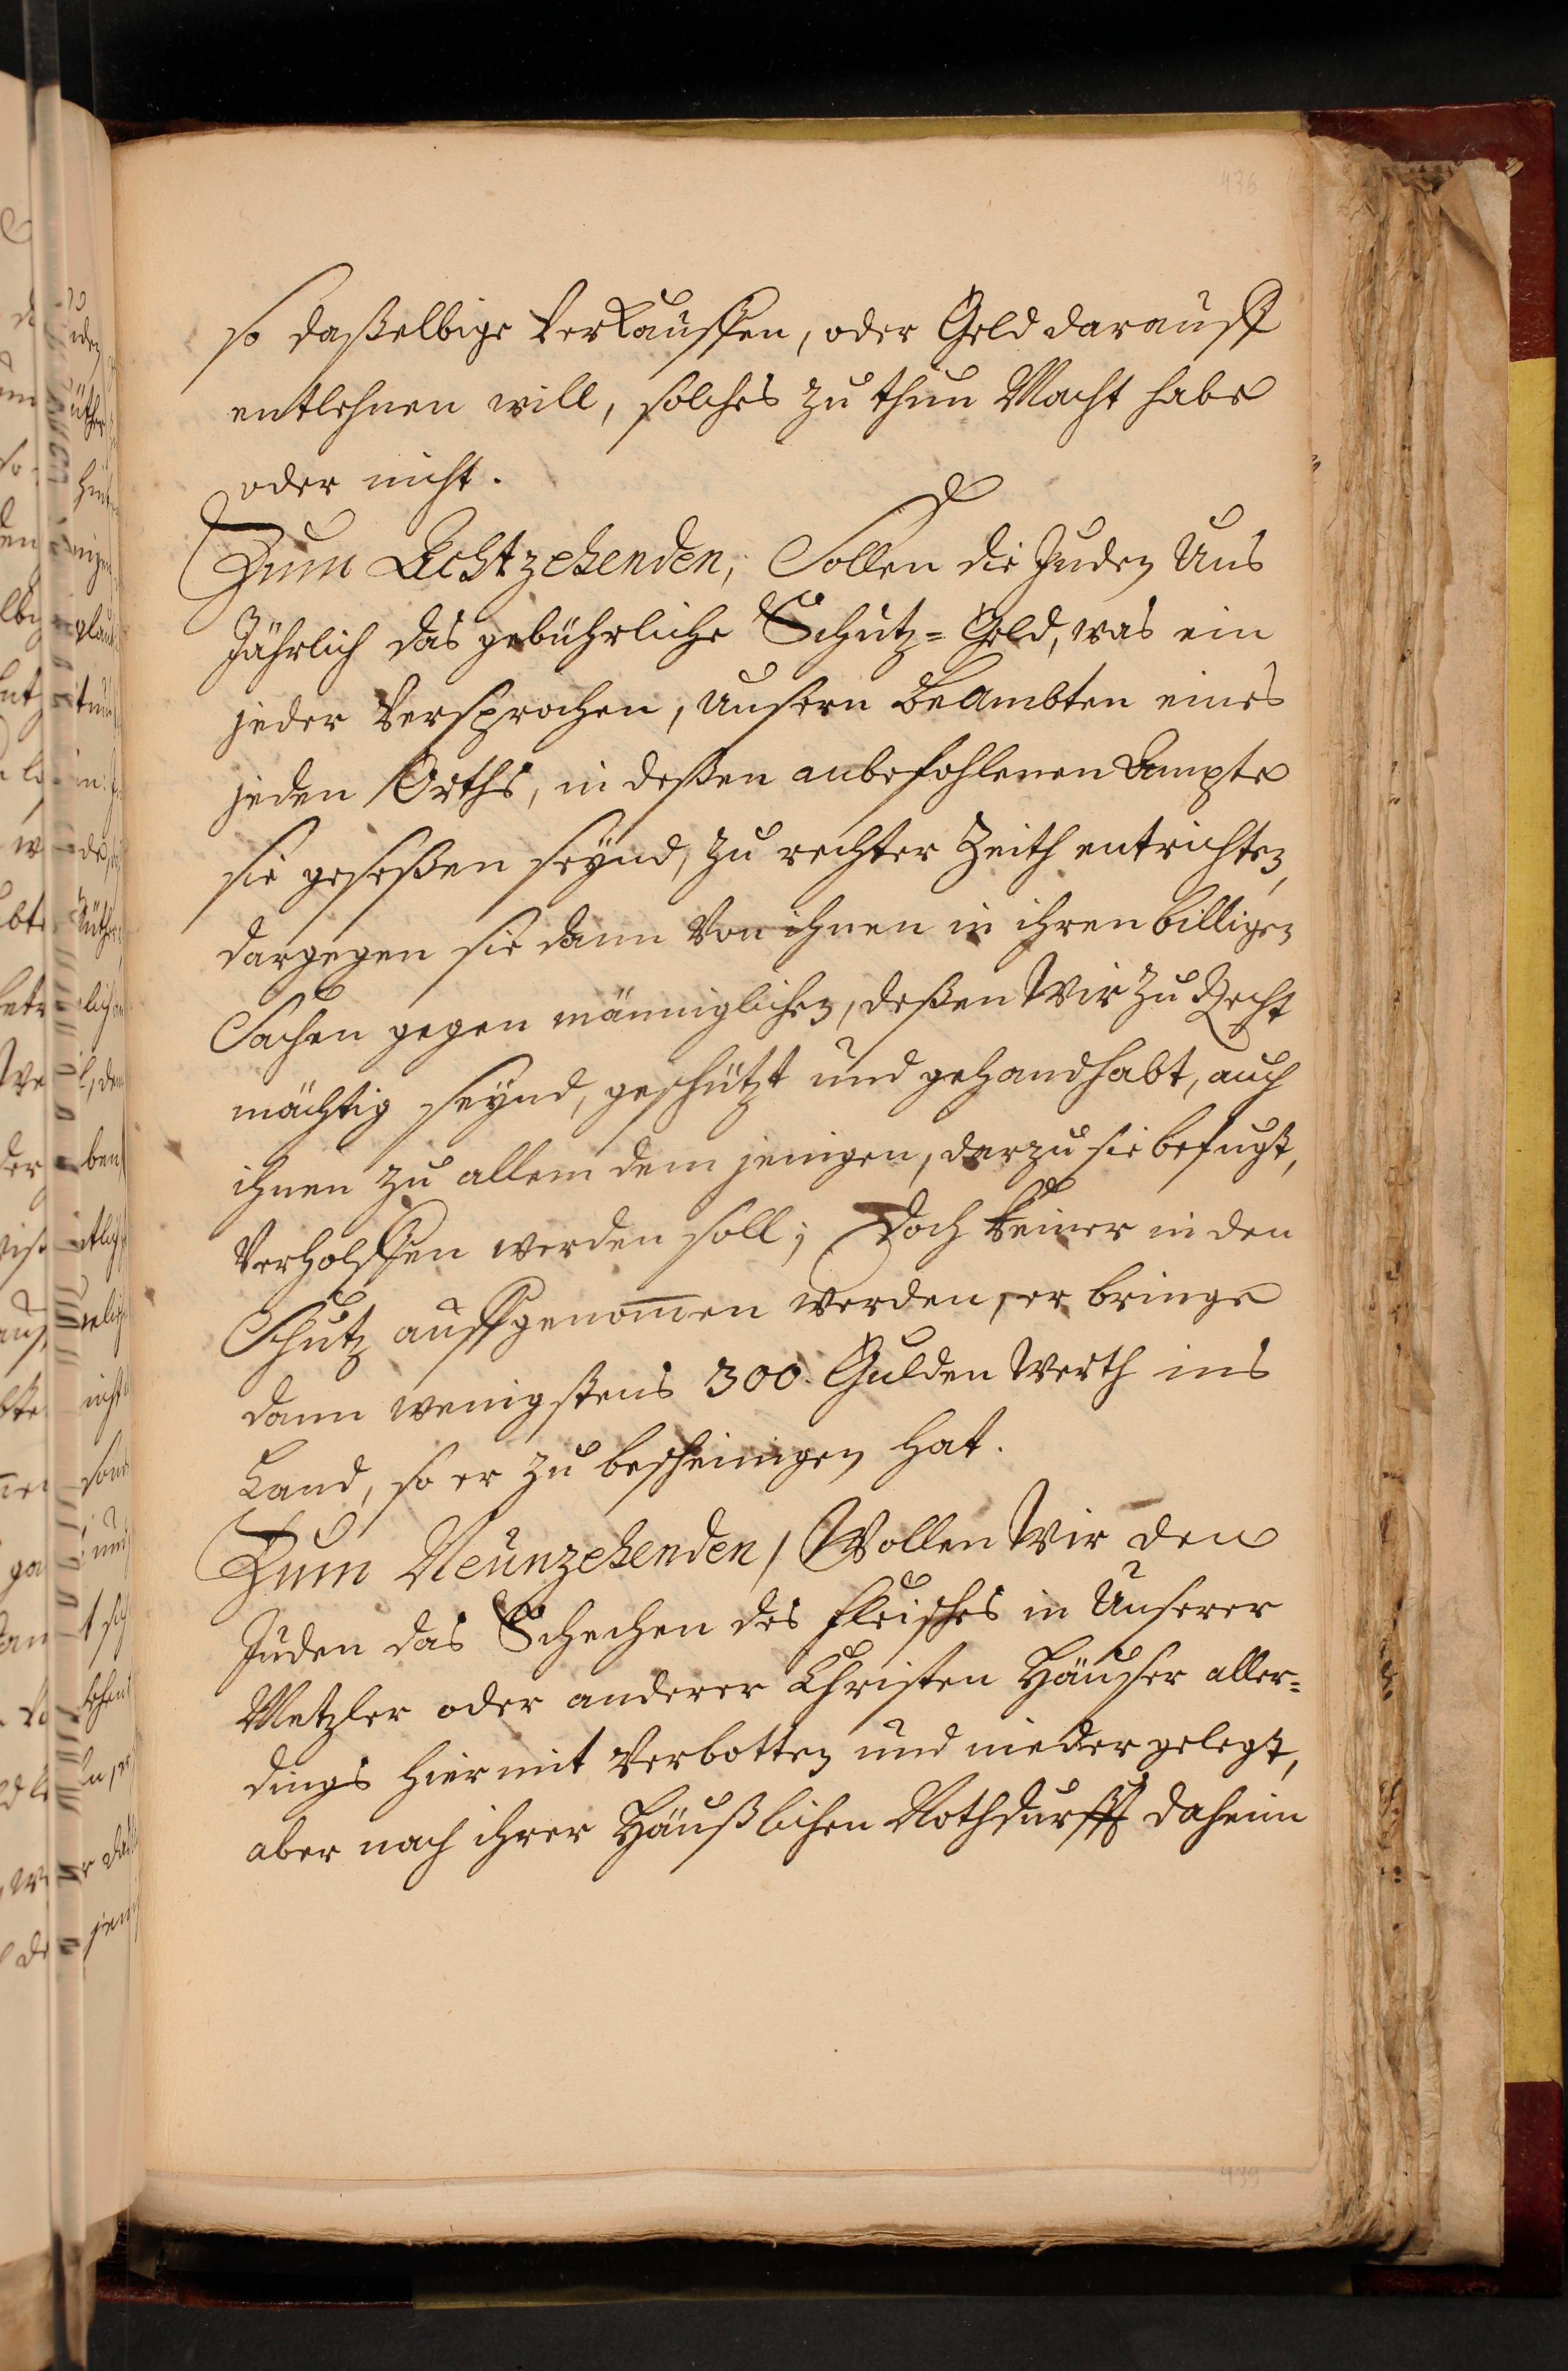 476
so daßelbige verkauffen, oder Geld darauff
entlehnen will, solches zu thun Macht habe
oder nicht.
Zum Achtzehenden, Sollen die Juden Uns
Jährlich das gebührliche Schutz=Geld, was ein
jeder versprochen, unsern Beambten eines
jeden Orths, in deßen anbefohlenen Ampte
sie geseßen seynd, zu rechter Zeith entrichten,
dargegen sie dann von ihnen in ihren billigen
Sachen gegen männiglichen, deßen Wir zu Recht
mächtig seynd, geschützt und gehandhabt, auch
ihnen zu allem dem jenigen, darzu sie befugt,
verholffen werden soll; Doch keiner in den
Schutz auffgenom̄en werden, er bringe
dann wenigstens 300. Gulden Werth ins
Land, so er zu bescheinigen hat.
Zum Neunzehenden, Wollen Wir den
Juden das Schechen des Fleisches in Unserer
Metzler oder anderer Christen Häußer aller=
dings hiermit verbotten und nieder gelegt,
aber nach ihrer Häußlichen Nothdurfft daheim